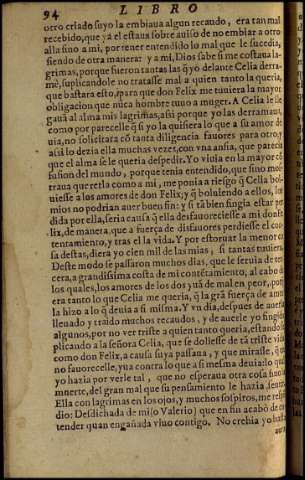 94 LIBRO
otro criado suyo la embiaua algun recaudo, era tan mal
recebido, que ya el estaua sobre auiso de no embiar a otro
alla sino a mi, por tener entendido lo mal que le sucedia,
siendo de otra manera: y a mi, Dios sabe si me costaua la-
grimas, porque fueron tantas las q̃ yo delante Celia derra-
mè, suplicandole no tratasse mal a quien tanto la queria,
que bastara esto, para que don Felix me tuuiera la mayor
obligacion que nũca hombre tuuo a muger. A Celia le lle-
gauã al alma mis lagrimas, assi porque yo las derramaua,
como por parecelle q̃ si yo la quisiera lo que a su amor de-
uia, no solicitara cõ tanta diligencia fauores para otro, y
assi lo dezia ella muchas vezes, con vna ansia, que parecia
que el alma se le queria despedir. Yo viuia en la mayor cõ-
fusion del mundo, porque tenia entendido, que sino mos-
traua quererla como a mi, me ponia a riesgo q̃ Celia bol-
uiesse a los amores de don Felix; y q̃ boluiendo a ellos, los
mios no podrian auer buen fin: y si tãbien fingia estar per-
dida por ella, seria causa q̃ ella desfauoreciesse a mi don Fe-
lix, de manera, que a fuerça de disfauores perdiesse el con-
tentamiento, y tras el la vida. Y por estoruar la menor co-
sa destas, diera yo cien mil de las mias, si tantas tuuiera.
Deste modo se passaron muchos dias, que le seruia de ter-
cera, a grandissima costa de mi contẽtamiento, al cabo de
los quales, los amores de los dos yuã de mal en peor, por q̃
era tanto lo que Celia me queria, q̃ la grã fuerça de amor
la hizo a lo q̃ deuia a si misma. Y vn dia, despues de auerla
llenado y traido muchos recaudos, y de auerle yo fingido
algunos, por no ver triste a quien tanto queria, estando su-
plicando a la señora Celia, que se doliesse de tã triste vida
como don Felix, a causa suya passaua, y que mirasse, q̃ en
no fauorecelle, yua contra lo que a si mesma deuia: lo qual
yo hazia por verle tal, que no esperaua otra cosa sino la
muerte, del gran mal que su pensamiento le hazia sentir.
Ella con lagrimas en los ojos, y muchos sospiros, me respõ-
dio: Desdichada de mi (o Valerio) que en fin acabò de en-
tender quan engañada viuo contigo. No crehia yo hasta